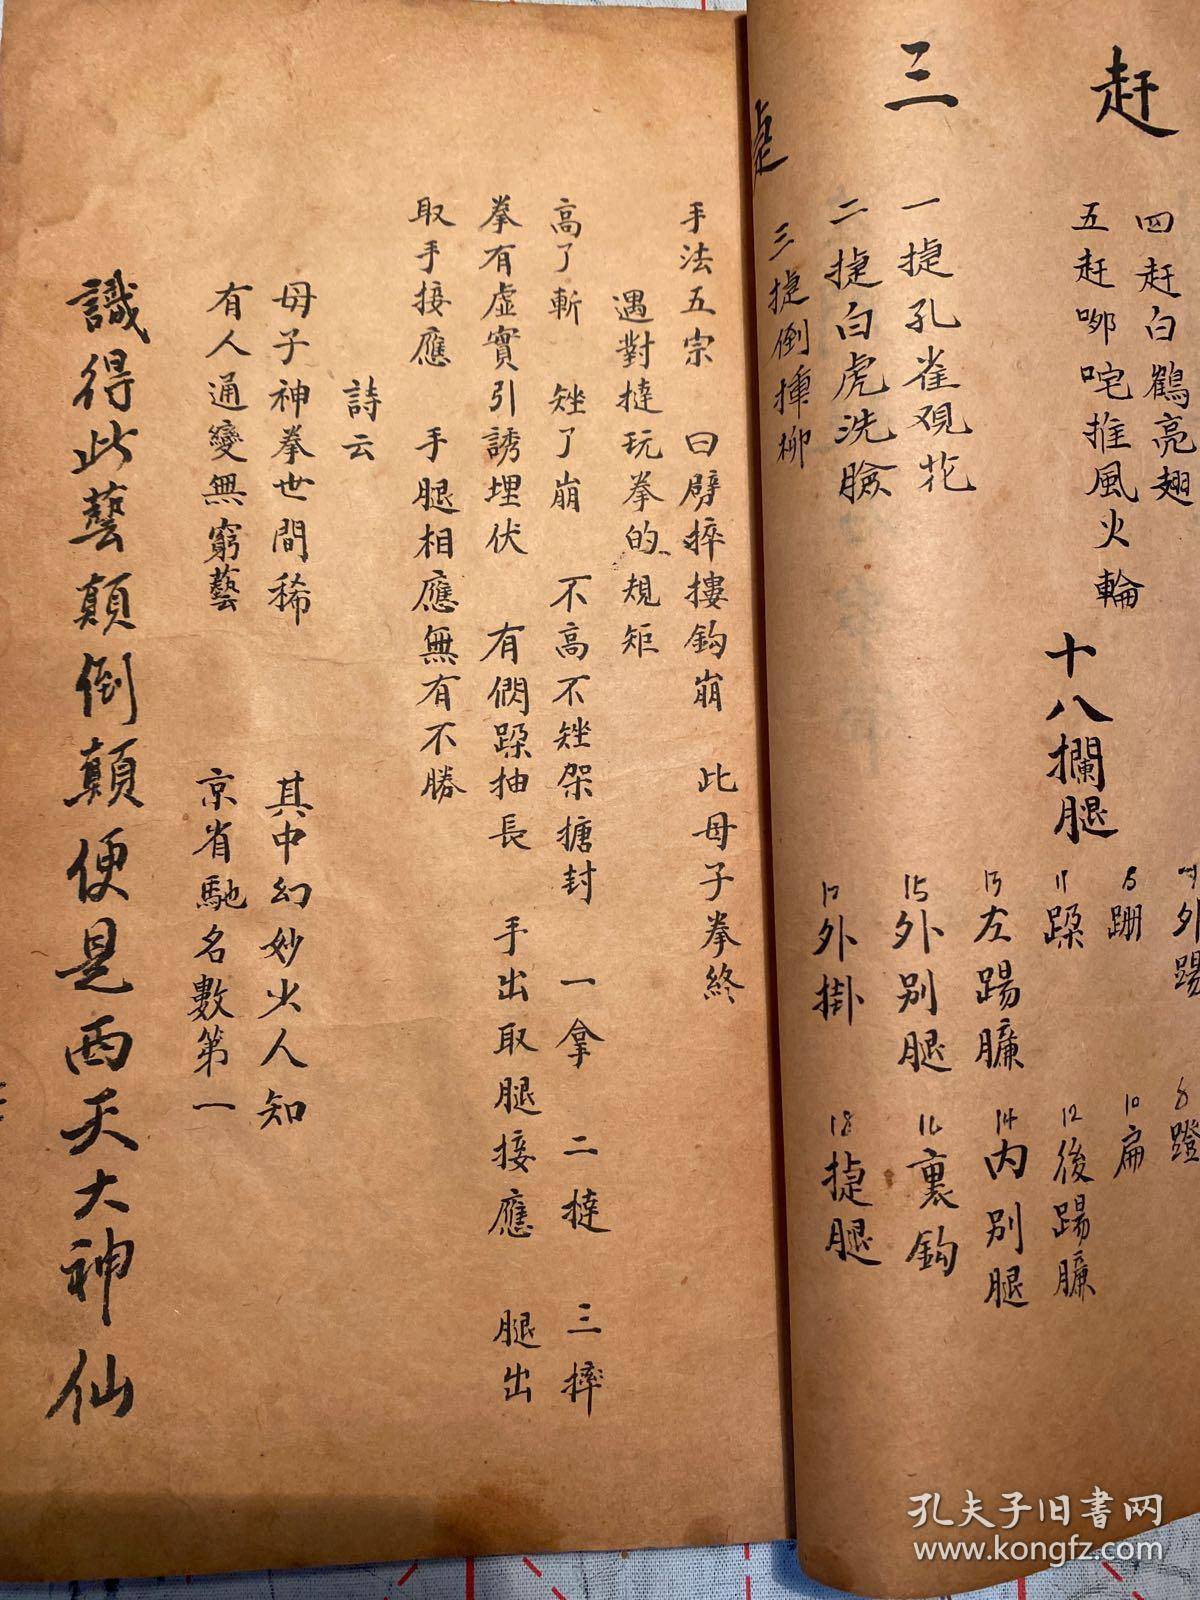 赶
四赶白鶴亮翅
五赶哪咤推風火輪
十八攔腿
外踢
8蹬
蹦
10扁
11跺
12後踢臁
13左踢臁
14内別腿
15外別腿
16裏鈎
17外掛
18捷腿
三
一捷孔雀观花
二捷白虎洗臉
三捷倒捶柳
捷
手法五宗 曰劈捽摟鈎崩 此母子拳終
遇對撻玩拳的規矩
高了斬 矬了崩 不高不矬架搪封 一拿 二撻 三摔
拳有虛實引誘埋伏 有閃跺抽長 手出取腿接應 腿出
取手接應 手腿相應無有不勝
詩云
母子神拳世間稀 其中幻妙少人知
有人通變無窮藝 京省馳名數第一
識得此藝顛倒顛便是西天大神仙
孔夫子旧书网
www.kongfz.com